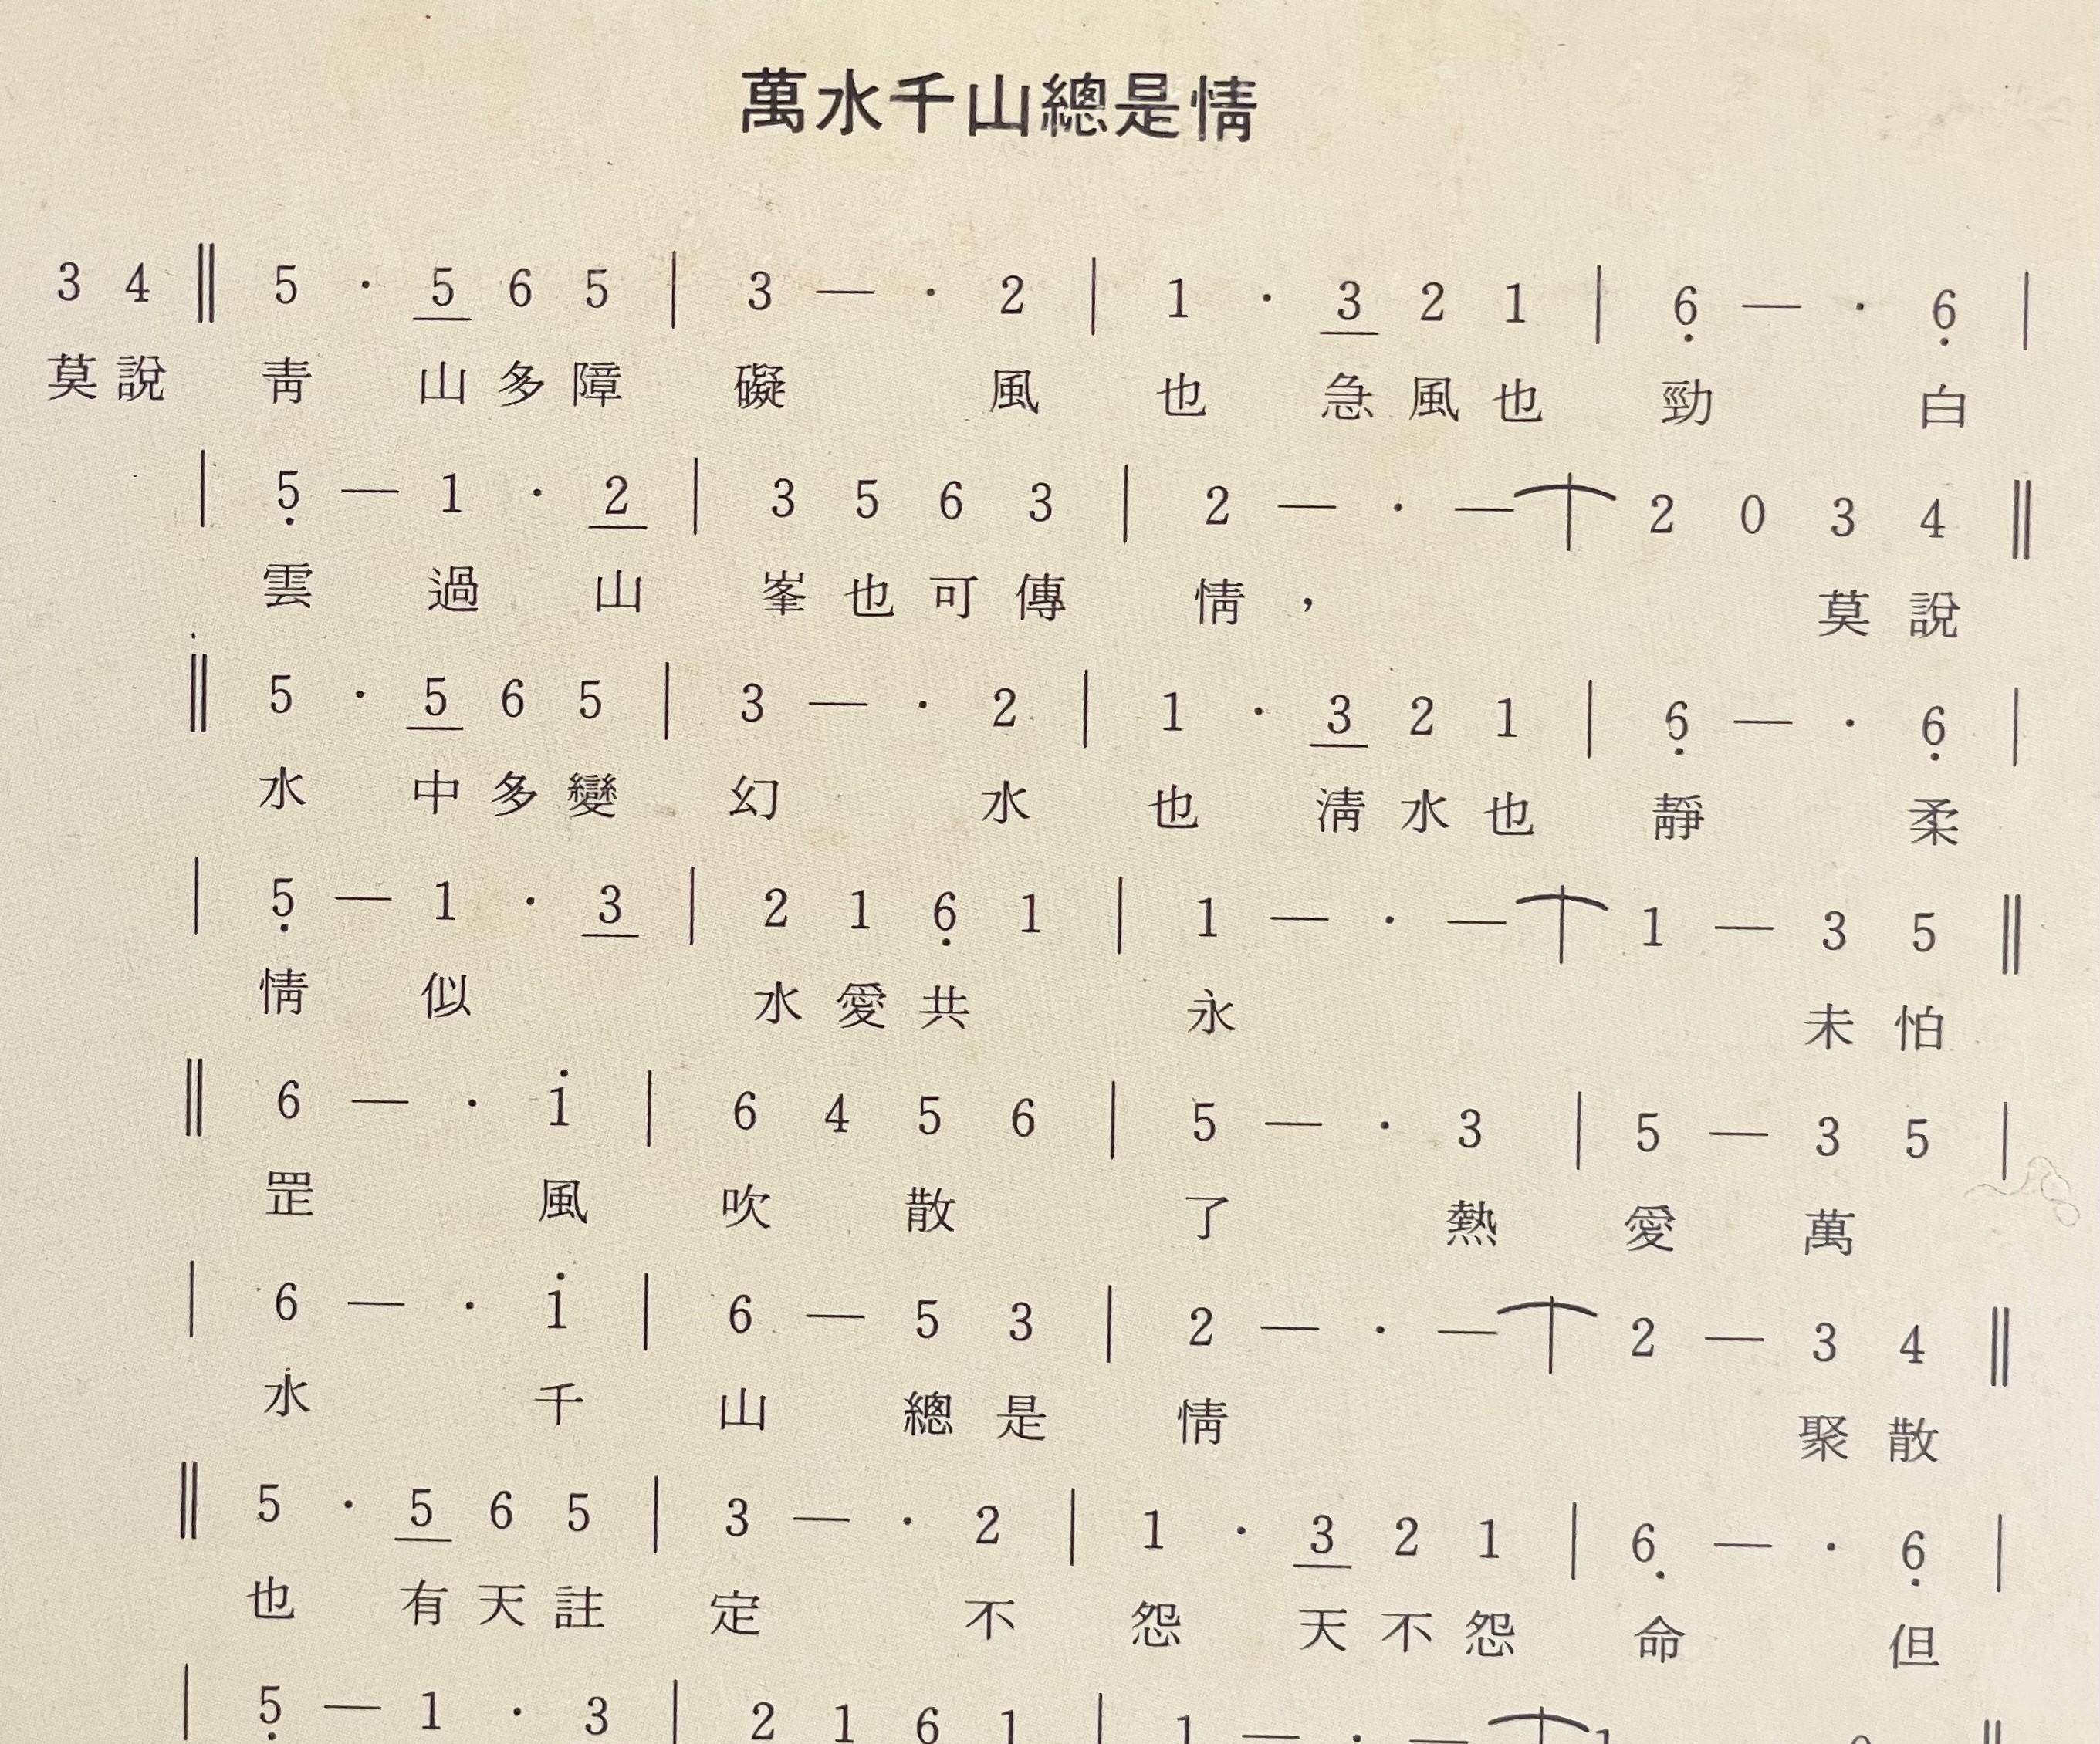 萬水千山總是情
3 4 ‖ 5 · 5 6 5 | 3 — · 2 | 1 · 3 2 1 | 6̣ — · 6̣ |
莫 說 靑 山 多 障 礙 風 也 急 風 也 勁 白
| 5̣ — 1 · 2 | 3 5 6 3 | 2 — · — | 2 0 3 4 ‖
雲 過 山 峯 也 可 傳 情 , 莫 說
‖ 5 · 5 6 5 | 3 — · 2 | 1 · 3 2 1 | 6̣ — · 6̣ |
水 中 多 變 幻 水 也 淸 水 也 靜 柔
| 5̣ — 1 · 3 | 2 1 6̣ 1 | 1 — · — | 1 — 3 5 ‖
情 似 水 愛 共 永 未 怕
‖ 6 — · 1̇ | 6 4 5 6 | 5 — · 3 | 5 — 3 5 |
罡 風 吹 散 了 熱 愛 萬
| 6 — · 1̇ | 6 — 5 3 | 2 — · — | 2 — 3 4 ‖
水 千 山 總 是 情 聚 散
‖ 5 · 5 6 5 | 3 — · 2 | 1 · 3 2 1 | 6̣ — · 6̣ |
也 有 天 註 定 不 怨 天 不 怨 命 但
| 5̣ — 1 · 3 | 2 1 6 1 | 1 — · — | 1 ‖